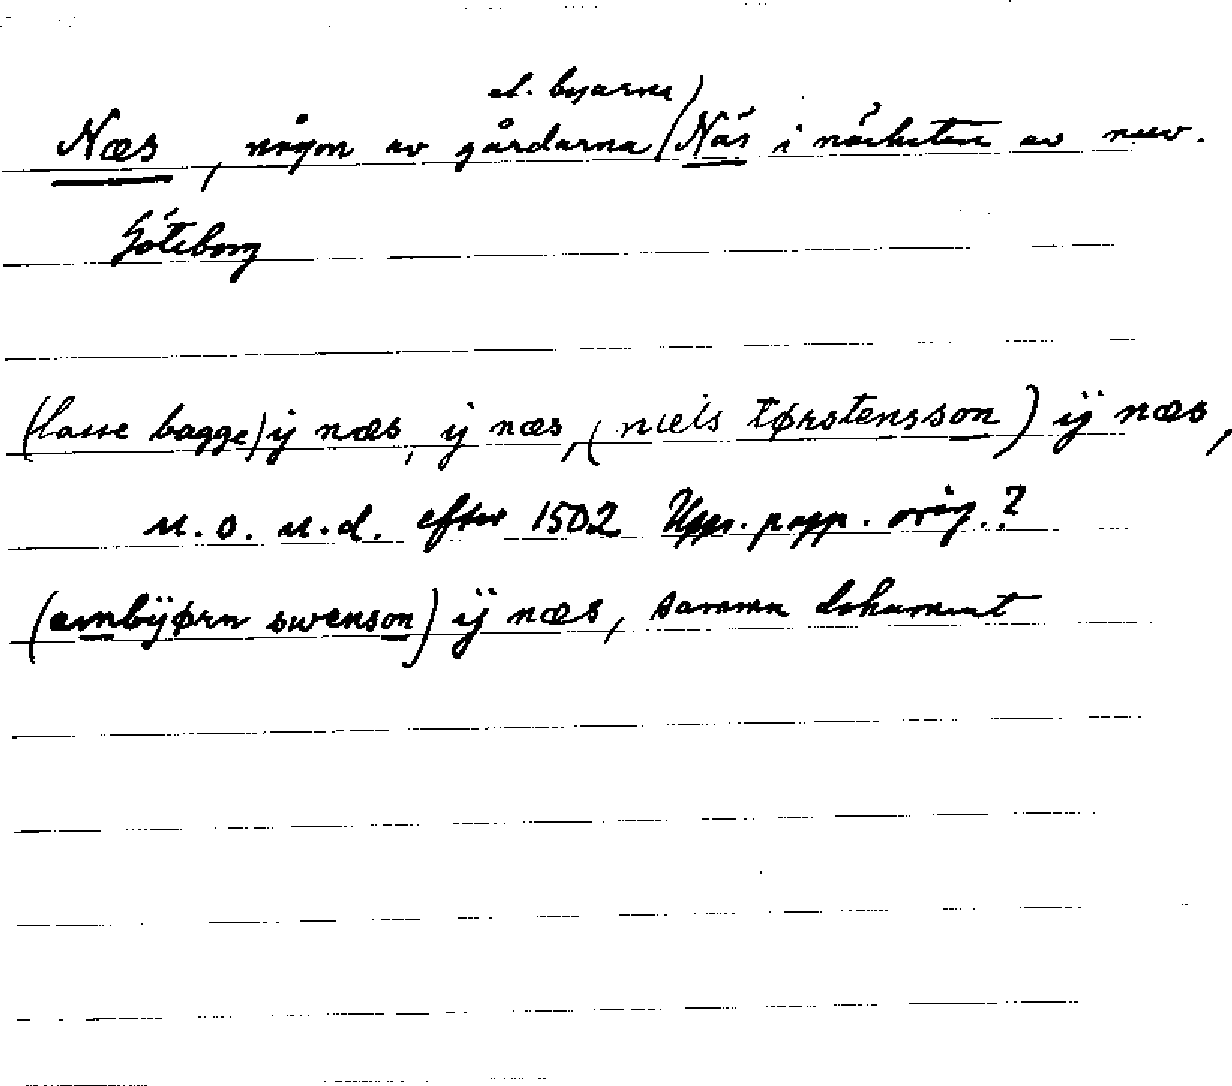 el. byarna
Næs, någon av gårdarna / Näs i närheten av nuv.
Göteborg
(lasse bagge) ij næs, ij næs, (niels tørstensson) ÿ næs,
u. o. u. d. efter 1502 Upps. papp. orig.?
(embÿørn swenson) ÿ næs, samma dokument